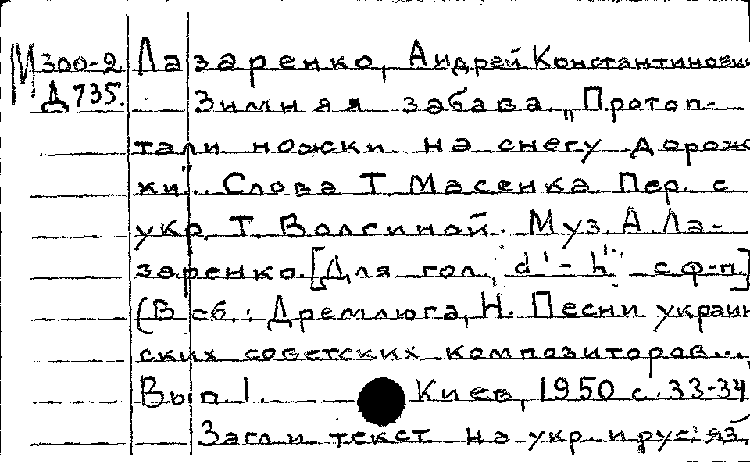 М 300-2 Лазаренко, Андрей Константинович
Д 735. Зимняя забава. "Протоп-
тали ножки на снегу дорож-
ки". Слова Т. Масенка. Пер. с
укр. Т. Волгиной. Муз. А. Ла-
заренко. [Для гол. d¹ - h¹ с ф-п]
(В сб.: Дремлюга, Н. Песни украин-
ских советских композиторов...,
Вып. 1. Киев, 1950 с. 33-34
Загл и текст на укр. и рус. яз.